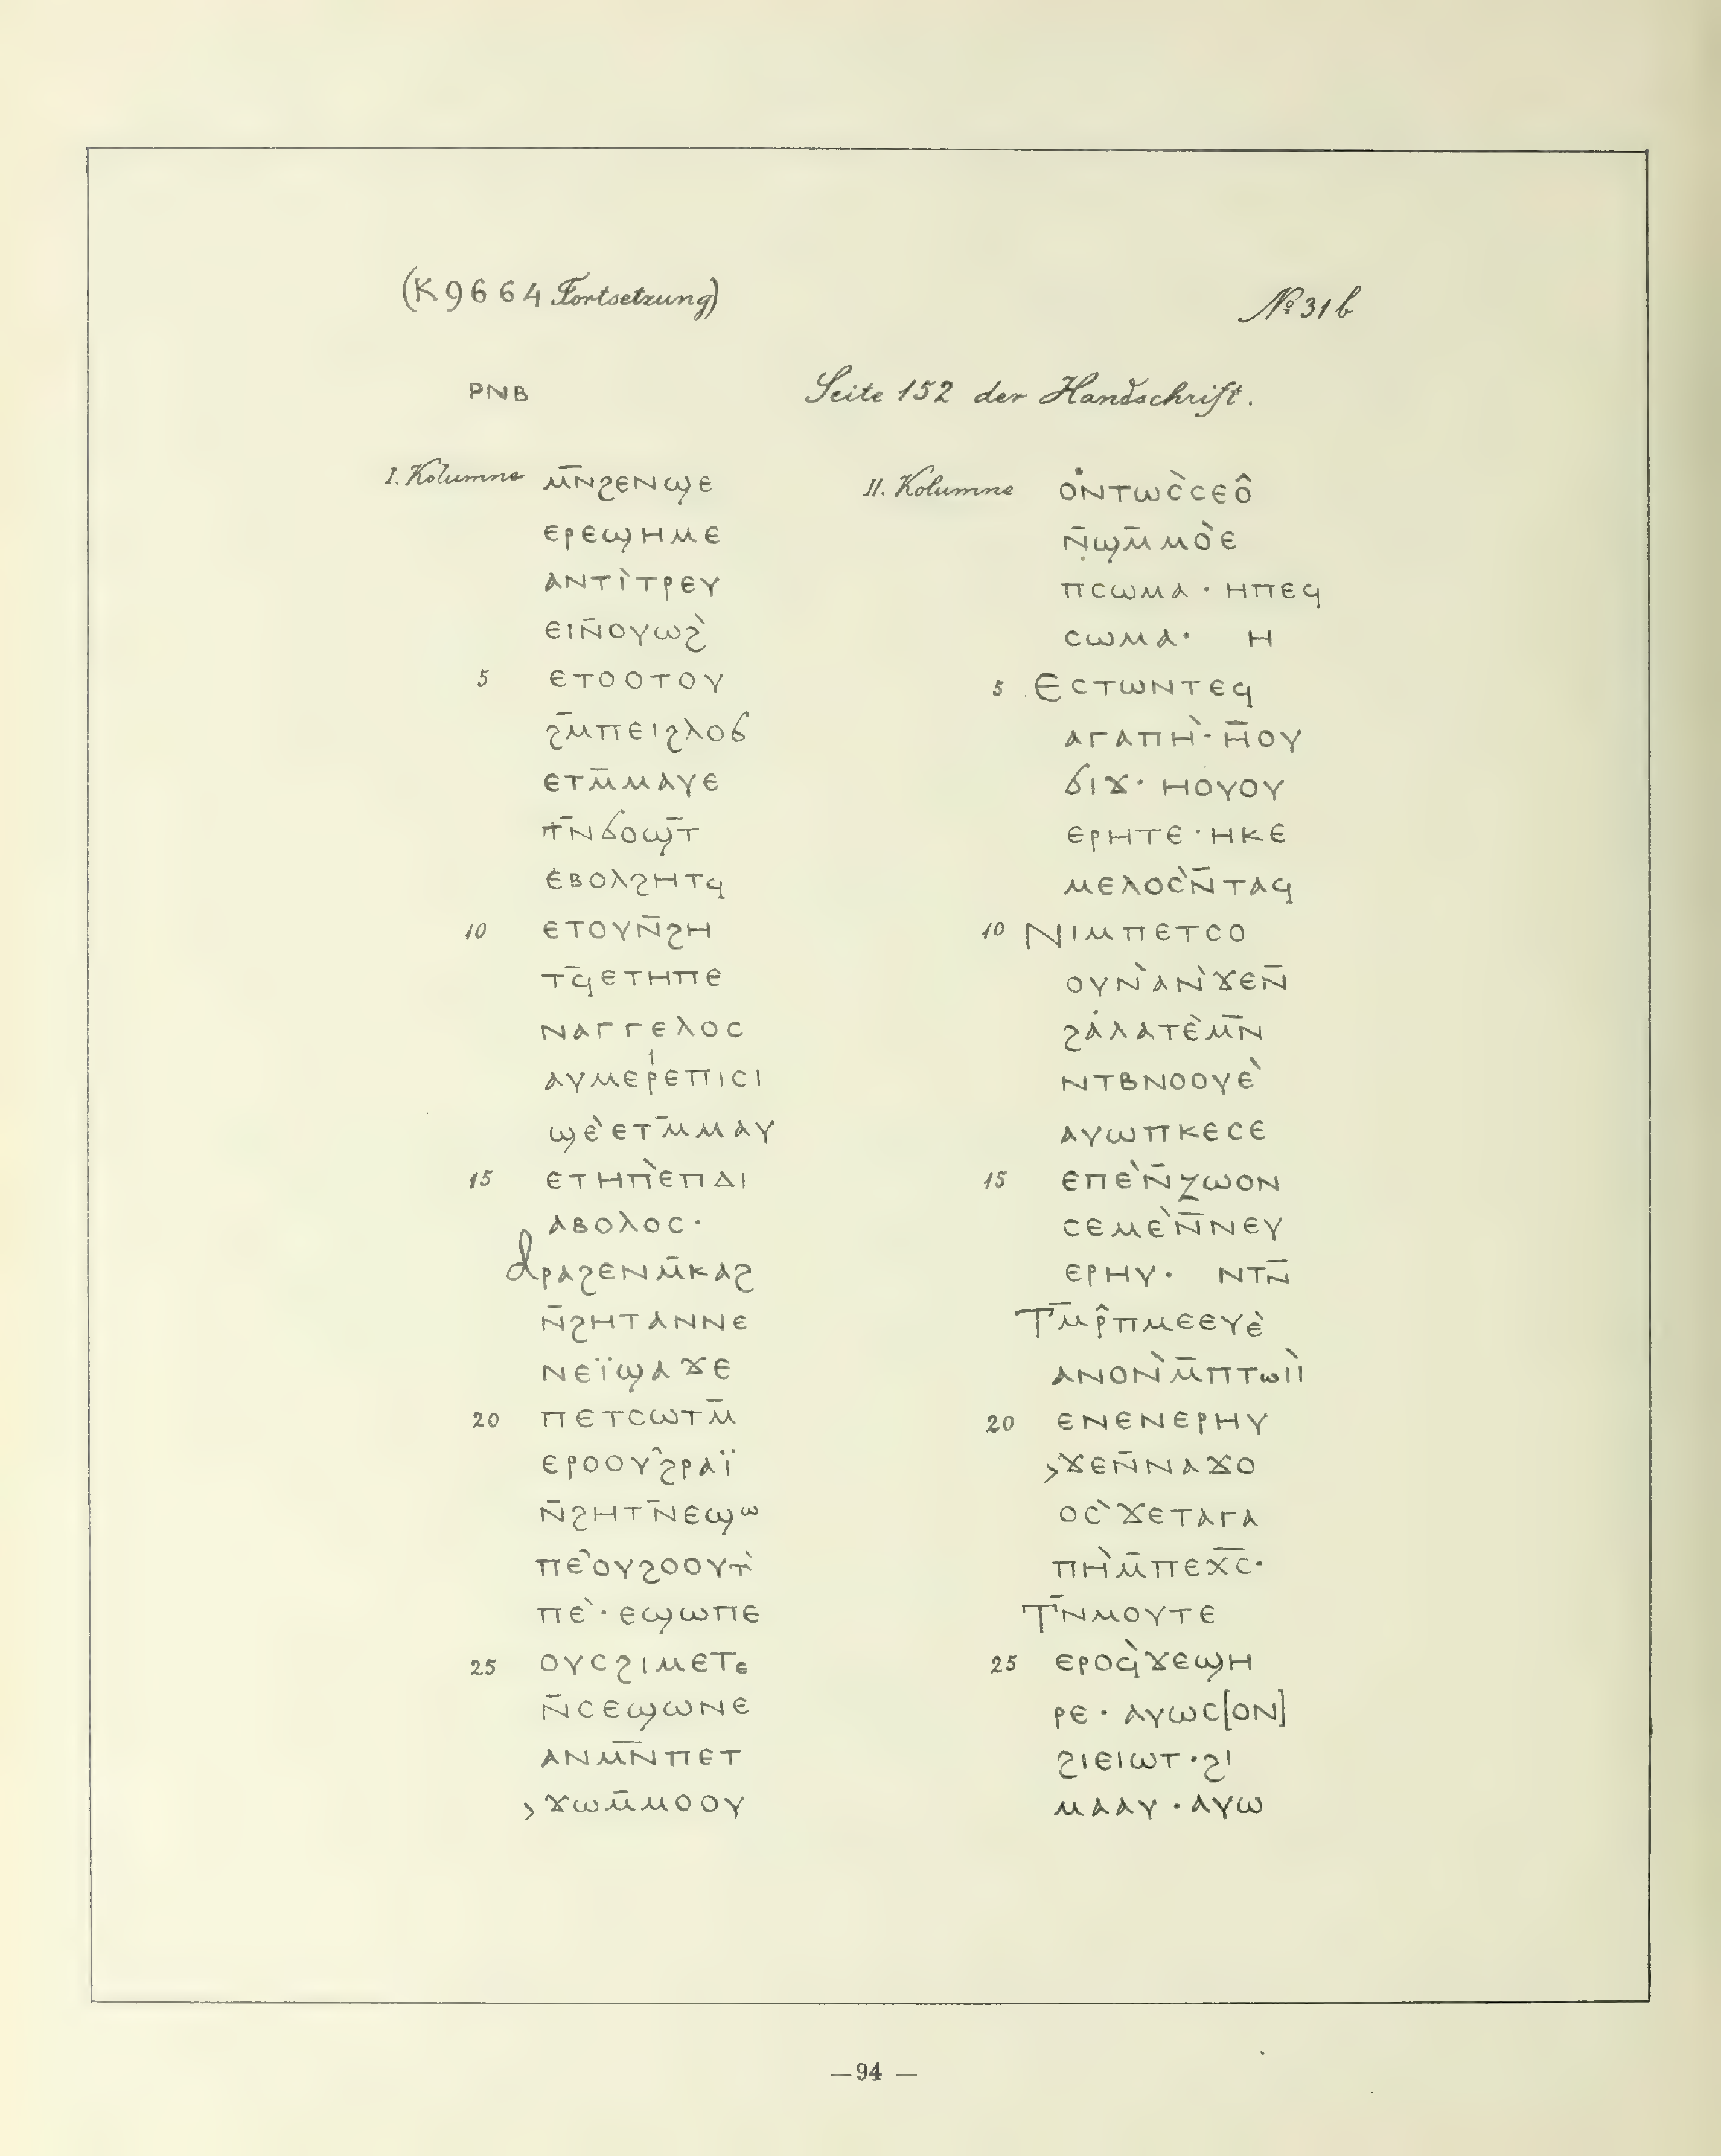 (K 9664 Fortsetzung)
№ 31b
ⲢⲚⲂ
Seite 152 der Handschrift.
I. Kolumne ⲙ̅ⲛϩⲉⲛϣⲉ
ⲉⲣⲉϣⲏⲙⲉ
ⲁⲛⲧⲓ̀ⲧⲣⲉⲩ
ⲉⲓⲛ̅ⲟⲩⲱϩ̀
5 ⲉⲧⲟⲟⲧⲟⲩ
ϩ̅ⲙⲡⲉⲓϩⲗⲟϭ
ⲉⲧⲙ̅ⲙⲁⲩⲉ
ⲧ̅ⲛϭⲟϣ̅ⲧ
ⲉⲃⲟⲗϩⲏⲧϥ
10 ⲉⲧⲟⲩⲛ̅ϩⲏ
ⲧϥ̅ⲉⲧⲏⲡⲉ
ⲛⲁⲅⲅⲉⲗⲟⲥ
ⲁⲩⲙⲉⲣⲉⲡⲓⲥⲓ
ϣⲉ̀ⲉⲧⲙ̅ⲙⲁⲩ
15 ⲉⲧⲏⲡ̀ⲉⲡⲇⲓ
ⲁⲃⲟⲗⲟⲥ·
ⲁⲣⲁϩⲉⲛⲙ̅ⲕⲁϩ
ⲛ̅ϩⲏⲧⲁⲛⲛⲉ
ⲛⲉⲓ̈ϣⲁϫⲉ
20 ⲡⲉⲧⲥⲱⲧⲙ̅
ⲉⲣⲟⲟⲩ̂ϩⲣⲁⲓ̈
ⲛ̅ϩⲏⲧⲛ̅ⲉϣⲱ
ⲡⲉ̂ⲟⲩϩⲟⲟⲩⲧ̀
ⲡⲉ̀·ⲉϣⲱⲡⲉ
25 ⲟⲩⲥϩⲓⲙⲉⲧⲉ
ⲛ̅ⲥⲉϣⲱⲛⲉ
ⲁⲛⲙ̅ⲛ̅ⲡⲉⲧ
>ϫⲱⲙ̅ⲙⲟⲟⲩ
II. Kolumne ⲟ̇ⲛⲧⲱⲥ̀ⲥⲉⲟ̂
ⲛ̅ϣⲙ̅ⲙⲟ̀ⲉ
ⲡⲥⲱⲙⲁ· ⲏⲡⲉϥ
ⲥⲱⲙⲁ· ⲏ
5 Ⲉⲥⲧⲱⲛⲧⲉϥ
ⲁⲅⲁⲡⲏ̀·ⲏ̅ⲟⲩ
ϭⲓϫ· ⲏⲟⲩⲟⲩ
ⲉⲣⲏⲧⲉ·ⲏⲕⲉ
ⲙⲉⲗⲟⲥ̀ⲛ̅ⲧⲁϥ
10 Ⲛⲓⲙⲡⲉⲧⲥⲟ
ⲟⲩⲛ̀ⲁⲛ̀ϫⲉⲛ̅
ϩⲁ̇ⲗⲁⲧⲉ̀ⲙ̅ⲛ
ⲛⲧⲃⲛⲟⲟⲩⲉ̀
ⲁⲩⲱⲡⲕⲉⲥⲉ
15 ⲉⲡⲉ̀ⲛ̅ⲍⲱⲟⲛ
ⲥⲉⲙⲉ̀ⲛ̅ⲛⲉⲩ
ⲉⲣⲏⲩ· ⲛⲧⲛ̅
Ⲧ̅ⲙⲣ̂ⲡⲙⲉⲉⲩⲉ̀
ⲁⲛⲟⲛ̀ⲙ̅ⲡⲧⲱⲓⲓ̀
20 ⲉⲛⲉⲛⲉⲣⲏⲩ
>ϫⲉⲛ̅ⲛⲁϫⲟ
ⲟⲥ̀ϫⲉⲧⲁⲅⲁ
ⲡⲏ̀ⲙ̅ⲡⲉⲭ̅ⲥ̅·
Ⲧ̅ⲛⲙⲟⲩⲧⲉ
25 ⲉⲣⲟϥ̀ϫⲉϣⲏ
ⲣⲉ· ⲁⲩⲱⲥ[ⲟⲛ]
ϩⲓⲉⲓⲱⲧ·ϩⲓ
ⲙⲁⲁⲩ·ⲁⲩⲱ
— 94 —